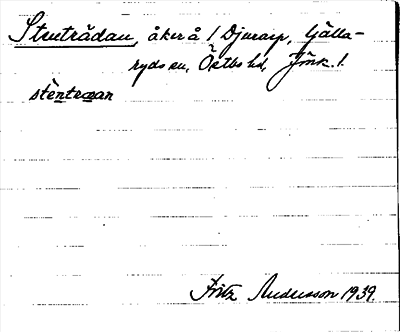 Stenträdan, åker å / Djurarp, Gälla-
ryds sn, Östbo hd, Jönk. l.
stèntræan
Fritz Andersson 1939.